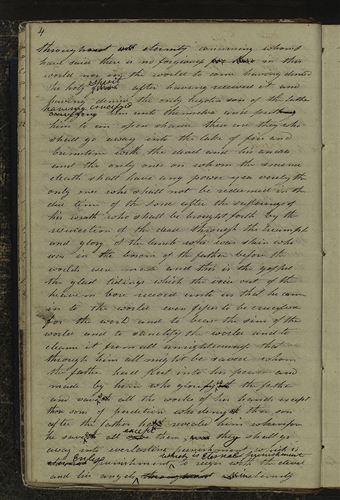 4
throughout all eternity concerning whom I
have said there is no forgiveness for them in this
world nor in the world to come having denied
the holy spirit after having received it and
having denied the only begotten son of the father
having crucified
him unto themselves and put
him to an open shame these are they who
shall go away into the lake of fire and
brimston with the devel and his angels
and the only ones on whom the second
death shall have any power yea verily the
only ones who shall not be redeemed in the
due time of the Lord after the sufferings of
his wrath who shall be brought forth by the
resurection of the dead through the triumph
and glory of the lamb who was slain who
was in the bosom of the father before the
worlds were made and this is the gospel
the glad tidings which the voice out of the
heavens bore record unto us that he came
in to the world even Jesus to be crucified
for the world and to bear the sins of the
world and to sanctify the world and to
cleanse it from all unrighteousness that
through him all might be saved whom
the father had put into his power and
made by him who glorifyeth the father
and saveth all the works of his hands except
those sons of perdition who denyeth the son
after the father hath revealed him wherefore
he saveth all except them they shall go
away into everlasting punishment which is
endless punishment which is eternal punishment
to reign with the devel
and his angels eternity